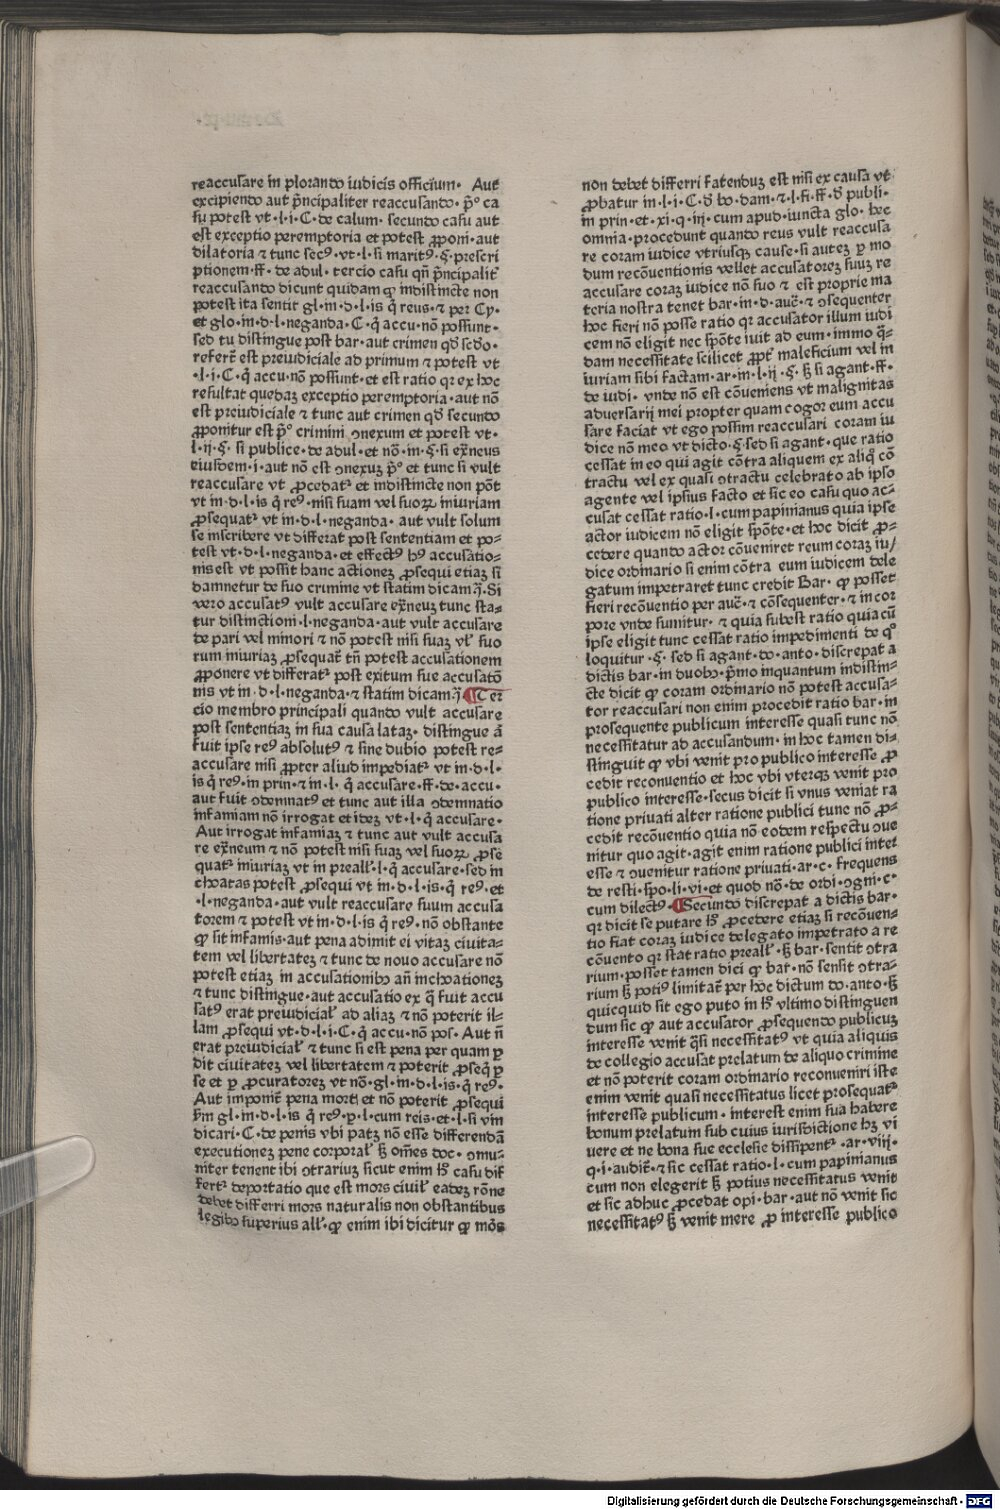 reaccusare in plorando iudicis officium· Aut
excipiendo aut p̃ncipaliter reaccusando· p̃º ca
su potest vt·l·i·C·de calum· secundo casu aut
est exceptio peremptoria et potest ꝓponi·aut
dilatoria ⁊ tunc secꝰ·vt·l·si maritꝰ·§·prescri
ptionem·ff·de adul·tercio casu qñ p̃ncipalit̃
reaccusando dicunt quidam ꝙ indistincte non
potest ita sentit gl·in·d·l·is q̃ reus·⁊ per Cy·
et glo·in·d·l·neganda·C·q̃ accu·nõ possunt·
sed tu distingue post bar·aut crimen qđ sc̃do·
referẽ est preiudiciale ad primum ⁊ potest vt
·l·i·C·q̃ accu·nõ possunt·et est ratio qꝛ ex hoc
resultat quedaꝫ exceptio peremptoria·aut nõ
est preiudiciale ⁊ tunc aut crimen qđ secundo
ꝓponitur est p̃º crimini ꝯnexum et potest vt·
l·ij·§·si publice·de adul·et nõ·in·§·si ex̃neus
eiusdem·i·aut nõ est ꝯnexuꝫ p̃º et tunc si vult
reaccusare vt ꝓcedatᷣ et indistincte non põt
vt in·d·l·is q̃ reꝰ·nisi suam vel suoꝝ iniuriam
ꝓsequatᷣ vt in·d·l·neganda· aut vult solum
se inscribere vt differat post sententiam et po-
test vt·d·l·neganda·et effectꝰ hꝰ accusatio-
nis est vt possit hanc actioneꝫ ꝓsequi etiaꝫ si
damnetur de suo crimine vt statim dicam·j̃·Si
vero accusatꝰ vult accusare ex̃neuꝫ tunc sta-
tur distinctioni·l·neganda·aut vult accusare
de pari vel minori ⁊ nõ potest nisi suaꝫ vl̃ suo
rum iniuriaꝫ ꝓsequat̃ tñ potest accusationem
ꝓponere vt differatᷣ post exitum sue accusatõ
nis vt in·d·l·neganda·⁊ statim dicam·j̃·¶Ter
cio membro principali quando vult accusare
post sententiaꝫ in sua causa lataꝫ· distingue ã
fuit ipse reꝰ absolutꝰ ⁊ sine dubio potest re-
accusare nisi ꝓpter aliud impediatᷣ vt in·d·l·
is q̃ reꝰ·in prin·⁊ in·l· q̃ accusare·ff·de·accu·
aut fuit ꝯdemnatꝰ et tunc aut illa ꝯdemnatio
infamiam nõ irrogat et ideꝫ vt·l·q̃ accusare·
Aut irrogat infamiaꝫ ⁊ tunc aut vult accusa
re ex̃neum ⁊ nõ potest nisi suaꝫ vel suoꝝ ꝓse
quatᷣ iniuriaꝫ vt in preall̃·l·q̃ accusare·sed in
choatas potest ꝓsequi vt in·d·l·is·q̃ reꝰ·et
·l·neganda·aut vult reaccusare suum accusa
torem ⁊ potest vt in·d·l·is q̃ reꝰ·nõ obstante
ꝙ sit infamis·aut pena adimit ei vitaꝫ ciuita-
tem vel libertateꝫ ⁊ tunc de nouo accusare nõ
potest etiaꝫ in accusationibꝰ añ inchoationeꝫ
⁊ tunc distingue·aut accusatio ex q̃ fuit accu
satꝰ erat preiudicial̃ ad aliaꝫ ⁊ nõ poterit il-
lam ꝓsequi vt·d·l·i·C·q̃ accu·nõ pos·Aut ñ
erat preiudicial̃ ⁊ tunc si est pena per quam ꝑ
dit ciuitateꝫ vel libertatem ⁊ poterit ꝓseq̃ ꝑ
se et ꝑ ꝓcuratoreꝫ vt nõ·gl·in·d·l·is·q̃ reꝰ·
Aut imponit̃ pena mortꝭ et nõ poterit ꝓsequi
ẞm gl·in·d·l·is q̃ reꝰ·ꝑ·l·cum reis·et·l·si vin
dicari·C·de penis vbi patꝫ nõ esse differendã
executioneꝫ pene corporal̃ ꝗ̃ om̃es doc·ꝯmu-
niter tenent ibi ꝯtrariuꝫ sicut enim hꝰ casu dif
fertᷣ deportatio que est mors ciuil̃ eadeꝫ rõne
debet differri mors naturalis non obstantibus
legibꝰ superius all̃·ꝙ enim ibi dicitur ꝙ mõs
non debet differri fatenduꝫ est nisi ex causa vt
ꝓbatur in·l·i·C·đ bo·dam·⁊·l·fi·ff·đ publi·
in prin·et·xi·q·iij·cum apud·iuncta glo·hec
omnia·procedunt quando reus vult reaccusa
re coram iudice vtriusqꝫ cause·si auteꝫ ꝑ mo
dum recõuentionis vellet accusatoreꝫ suuꝫ re
accusare coraꝫ iudice nõ suo ⁊ est proprie ma
teria nostra tenet bar·in·d·auc̃·⁊ ꝯsequenter
hoc fieri nõ posse ratio qꝛ accusator illum iudi
cem nõ eligit nec spõte iuit ad eum·immo q̃-
dam necessitate scilicet ꝓpt̃ maleficium vel in
iuriam sibi factam·ar·in·l·ij·§·ꝗ̃ si agant·ff·
de iudi·vnde nõ est cõueniens vt malignitas
aduersarij mei propter quam cogor eum accu
sare faciat vt ego possim reaccusari coram iu
dice nõ meo vt dicto·§·sed si agant·que ratio
cessat in eo qui agit cõtra aliquem ex aliq̃ cõ
tractu vel ex quasi ꝯtractu celebrato ab ipso
agente vel ipsius facto et sic eo casu quo ac-
cusat cessat ratio·l·cum papinianus quia ipse
actor iudicem nõ eligit spõte·et hoc dicit ꝓ-
cedere quando actor cõueniret reum coraꝫ iu/
dice ordinario si enim cõtra eum iudicem dele
gatum impetraret tunc credit Bar·ꝙ posset
fieri recõuentio per auc̃·⁊ cõsequenter·⁊ in cor
pore vnde sumitur·⁊ quia subest ratio quia cũ
ipse eligit tunc cessat ratio impedimenti de qº
loquitur·§·sed si agant·do·anto·discrepat a
dictis bar·in duobꝰ·p̃mo inquantum indistin-
cte dicit ꝙ coram ordinario nõ potest accusa-
tor reaccusari non enim procedit ratio bar·in
prosequente publicum interesse quasi tunc nõ
necessitatur ad accusandum·in hoc tamen di-
stinguit ꝙ vbi venit pro publico interesse ꝓ
cedit reconuentio et hoc vbi vterqꝫ venit pro
publico interesse·secus dicit si vnus veniat ra
tione priuati alter ratione publici tunc nõ ꝓ-
cedit recõuentio quia nõ eodem respectu ꝯue
nitur quo agit·agit enim ratione publici inter
esse ⁊ ꝯuenitur ratione priuati·ar·c·frequens
de resti·spo·li·vi·et quod nõ·de ordi·ꝯgni·c·
cum dilectꝰ·¶Secundo discrepat a dictis bar·
qꝛ dicit se putare hꝰ ꝓcedere etiaꝫ si recõuen-
tio fiat coraꝫ iudice delegato impetrato a re
cõuento qꝛ stat ratio preall̃·ꝗ̃ bar·sentit ꝯtra
rium·posset tamen dici ꝙ bar·nõ sensit ꝯtra-
rium ꝗ̃ potiꝰ limitar̃ per hoc dictum do·anto·ꝗ̃
quicquid sit ego puto in hꝰ vltimo distinguen
dum sic ꝙ aut accusator ꝓsequendo publicuꝫ
interesse venit q̃si necessitatꝰ vt quia aliquis
de collegio accusat prelatum de aliquo crimine
et nõ poterit coram ordinario reconueniri iste
enim venit quasi necessitatus licet prosequatᷣ
interesse publicum·interest enim sua habere
bonum prelatum sub cuius iurisdictione hꝫ vi
uere et ne bona sue ecclesie dissipentᷣ·ar·viij·
q·i·audit̃·⁊ sic cessat ratio·l·cum papinianus
cum non elegerit ꝗ̃ potius necessitatus venit
et sic adhuc ꝓcedat opi·bar·aut nõ venit sic
necessitatꝰ ꝗ̃ venit mere ꝓ interesse publico
Digitalisierung gefördert durch die Deutsche Forschungsgemeinschaft - DFG